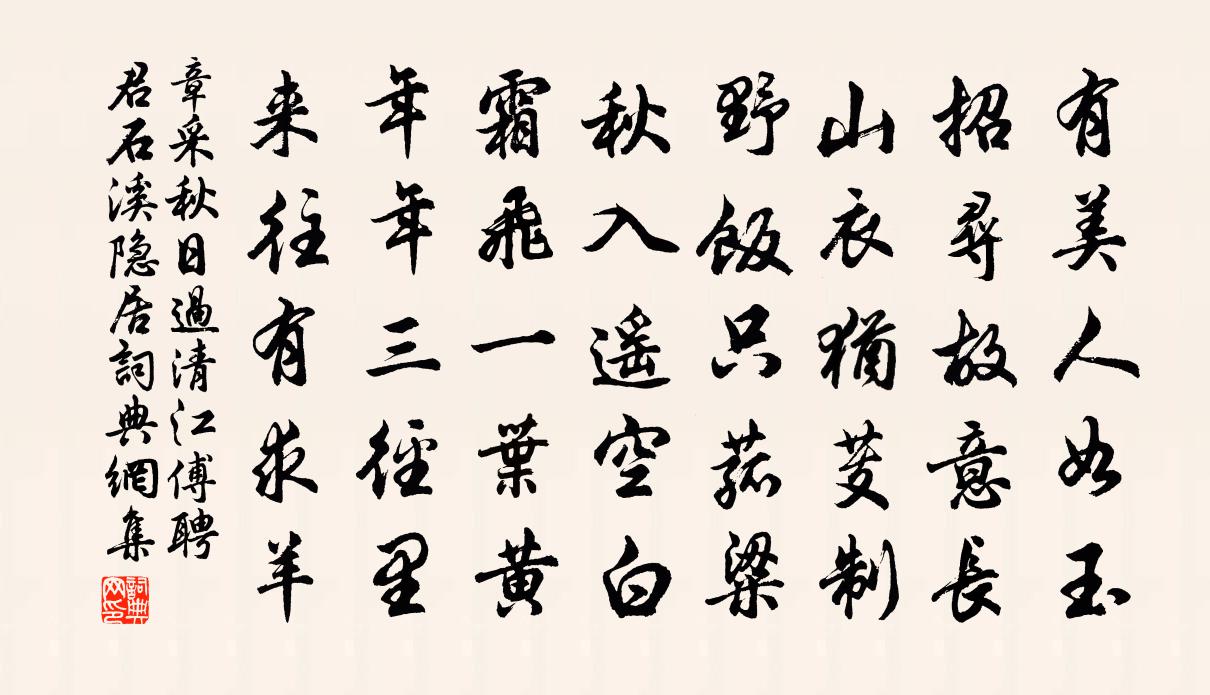 有美人如玉
招尋故意長
山衣猶芰制
野飯只菰粱
秋入遥空白
霜飛一葉黄
年年三徑里
来往有求羊
章采秋日過清江傅聘
君石溪隐居詞典網集
詞典網印